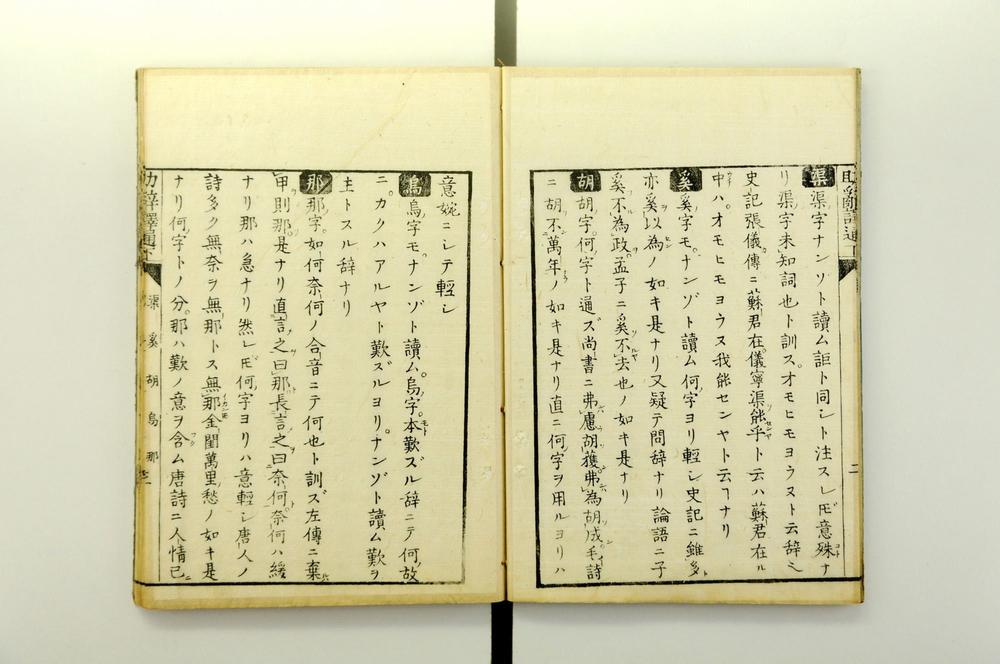 渠 渠字ナンゾト讀ム詎ト同シト注スレドモ意殊ナ
リ渠字未知詞也ト訓ス。オモヒモヨラヌト云辞ミ
史記張儀傳ニ蘇君在儀寧渠能乎ト云ハ蘇君在ル
中ハ。オモヒモヨラヌ我能センヤト云ヿナリ
奚 奚字モ。ナンゾト讀ム何字ヨリ輕シ史記ニ雖多
亦奚以為ノ如キ是ナリ又疑テ問辞ナリ論語ニ子
奚不為政孟子ニ奚不去也ノ如キ是ナリ
胡 胡字。何字ト通ズ尚書ニ弗慮胡獲弗為胡成毛詩
ニ胡不萬年ノ如キ是ナリ直ニ何字ヲ用ルヨリハ
意婉ニシテ輕シ
烏 烏字モ。ナンゾト讀ム。烏字。本歎ズル辞ニテ何故
ニ。カクハアルヤト歎ズルヨリ。ナンゾト讀ム歎ヲ
主トスル辞ナリ
那 那字。如何奈何ノ合音ニテ何也ト訓ズ左傳ニ棄
甲則那是ナリ直言之曰那長言之曰奈何奈何ハ緩
ナリ那ハ急ナリ然レドモ何字ヨリハ意輕シ唐人ノ
詩多ク無奈ヲ無那トス無那金閨萬里愁ノ如キ是
ナリ何字トノ分。那ハ歎ノ意ヲ含ム唐詩ニ人情已
助辞譯通下 渠 奚 胡 烏 那